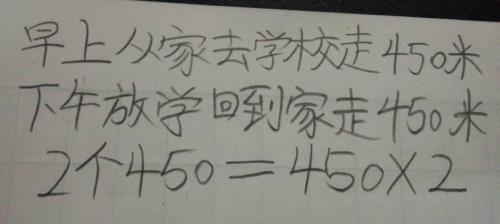 早上从家去学校走450米
下午放学回到家走450米
2个450=450×2